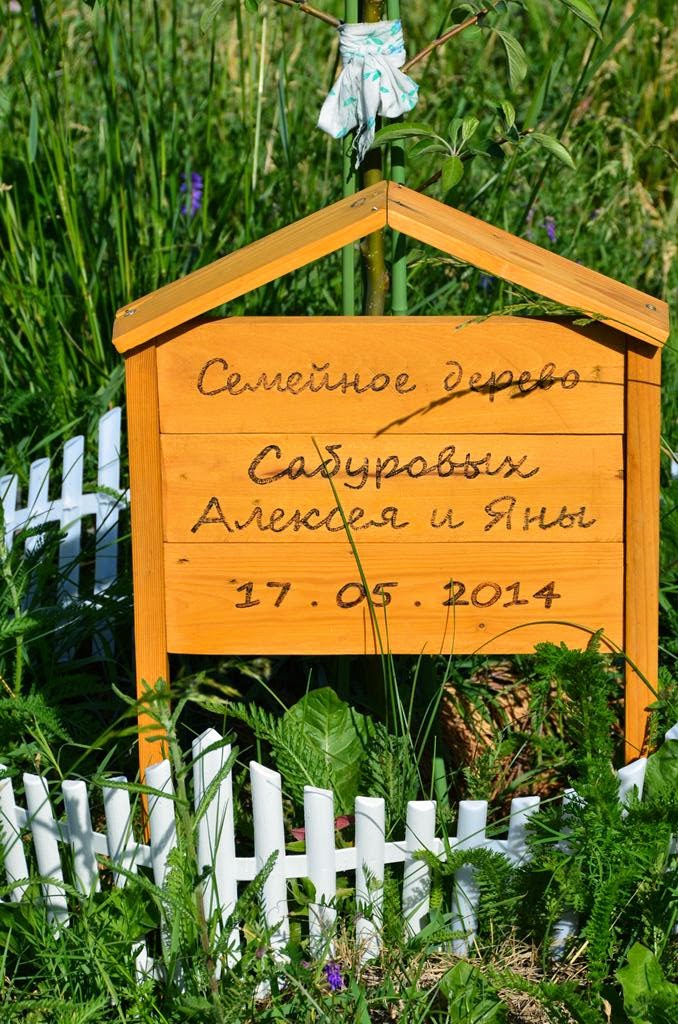 Семейное дерево
Сабуровых
Алексея и Яны
17.05.2014